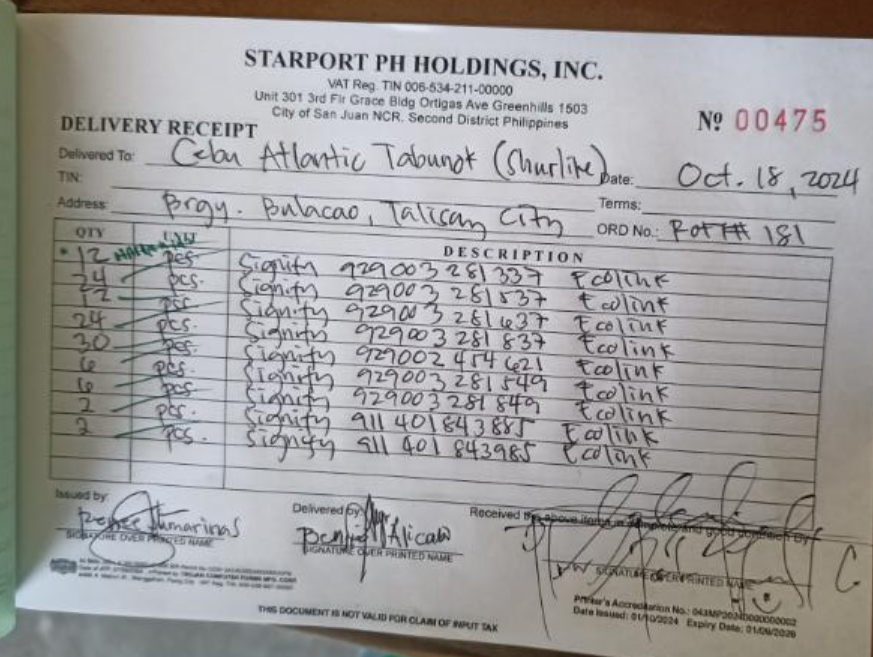 STARPORT PH HOLDINGS, INC.
VAT Reg. TIN 006-534-211-00000
Unit 301 3rd Flr Grace Bldg Ortigas Ave Greenhills 1503
City of San Juan NCR, Second District Philippines
Nº 00475
DELIVERY RECEIPT
Delivered To: Cebu Atlantic Tabunok (Shurlite) Date: Oct. 18, 2024
TIN: Terms:
Address: Brgy. Bulacao, Talisay City ORD No.: 181
QTY DESCRIPTION
12 pcs. Signify 929003 281337 Ecolink
24 pcs. Signify 929003 281537 Ecolink
12 pcs. Signify 929003 281637 Ecolink
24 pcs. Signify 929003 281837 Ecolink
30 pcs. Signify 929002 454621 Ecolink
6 pcs. Signify 929003 281549 Ecolink
6 pcs. Signify 929003 281849 Ecolink
2 pcs. Signify 911 401 843885 Ecolink
2 pcs. Signify 911 401 843985 Ecolink
Issued by: Delivered by: Received the above items in complete and good condition By
SIGNATURE OVER PRINTED NAME SIGNATURE OVER PRINTED NAME SIGNATURE OVER PRINTED NAME
THIS DOCUMENT IS NOT VALID FOR CLAIM OF INPUT TAX
Printer's Accreditation No.:
Date Issued: 01/10/2024 Expiry Date: